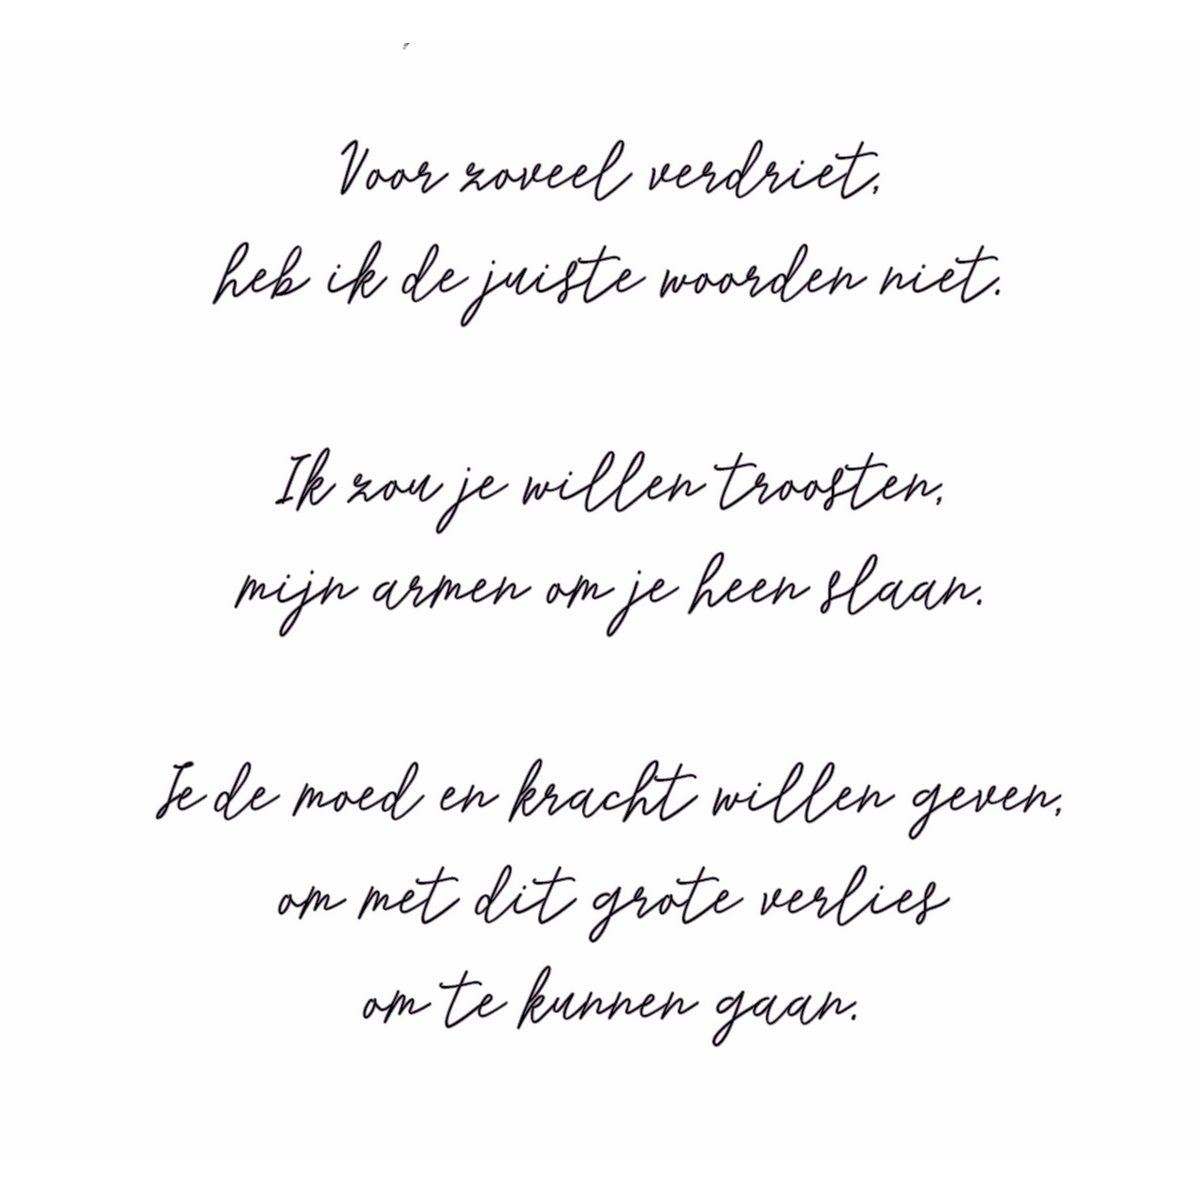 Voor zoveel verdriet,
heb ik de juiste woorden niet.
Ik zou je willen troosten,
mijn armen om je heen slaan.
Je de moed en kracht willen geven,
om met dit grote verlies
om te kunnen gaan.